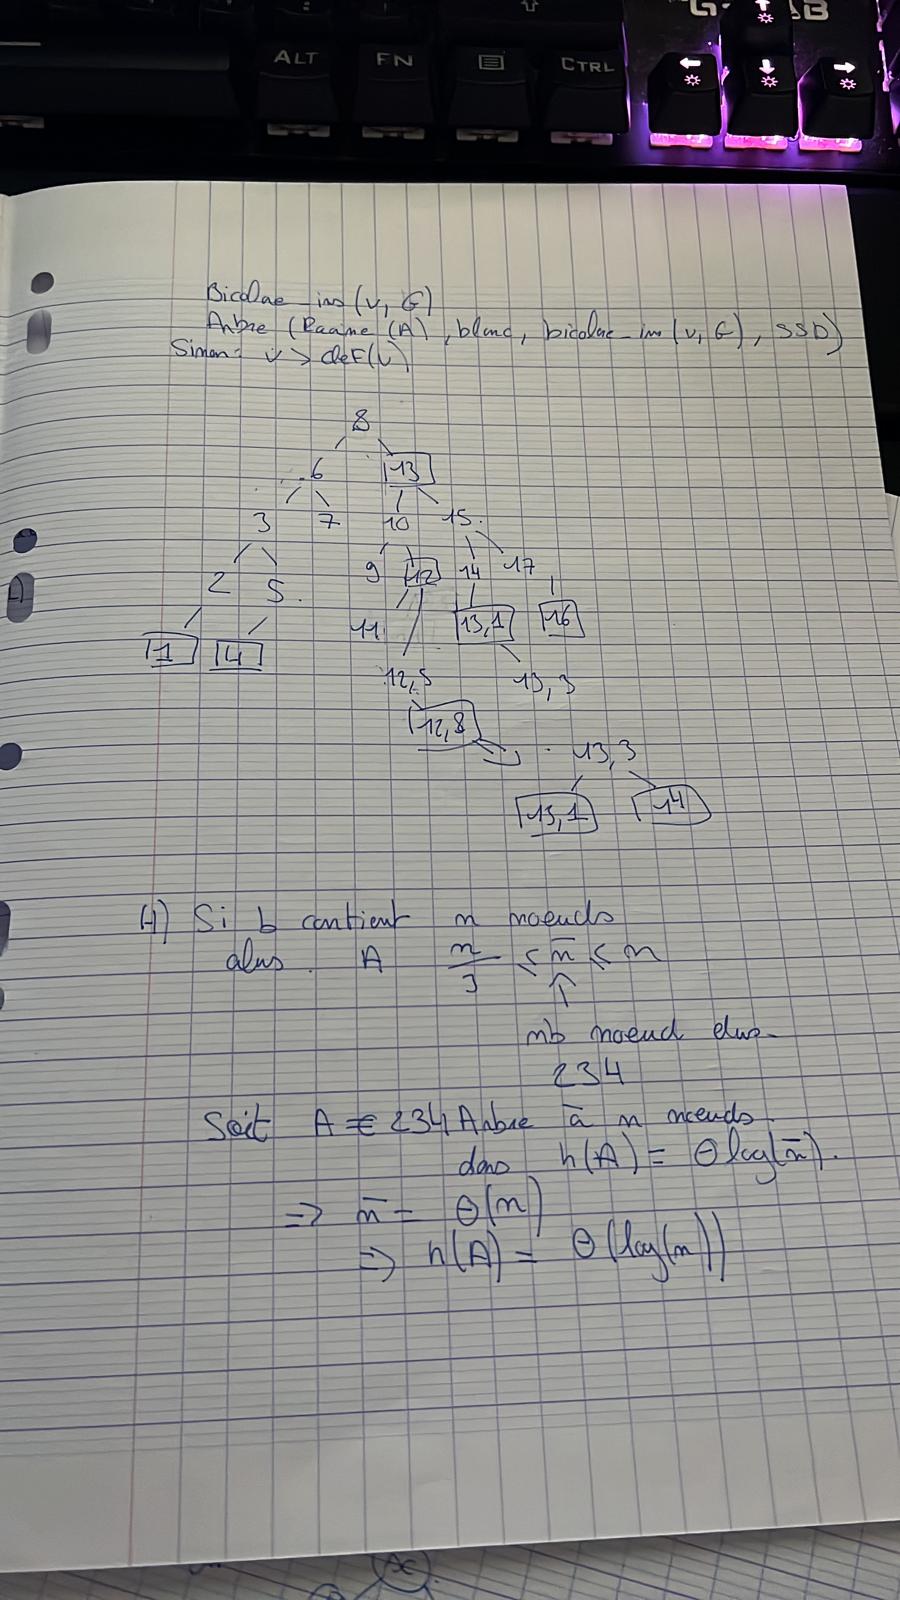 ALT FN CTRL
Bicolore_ins(v, G)
Arbre (Racine (A), blanc, bicolore_ins(v, G), SSD)
Sinon: v > clef(
8
6 13
3 7 10 15
2 5 9 12 14 17
1 4 11 13,1 16
12,5 13,3
12,8 13,3
13,1 14
4) Si b contient n noeuds
alors A n/3 ≤ n̄ ≤ n
↑
nb noeud dans
234
Soit A ∈ 234Arbre à n noeuds
dans h(A) = Θlog(n̄).
⇒ n̄ = Θ(n)
⇒ h(A) = Θ(log(n))